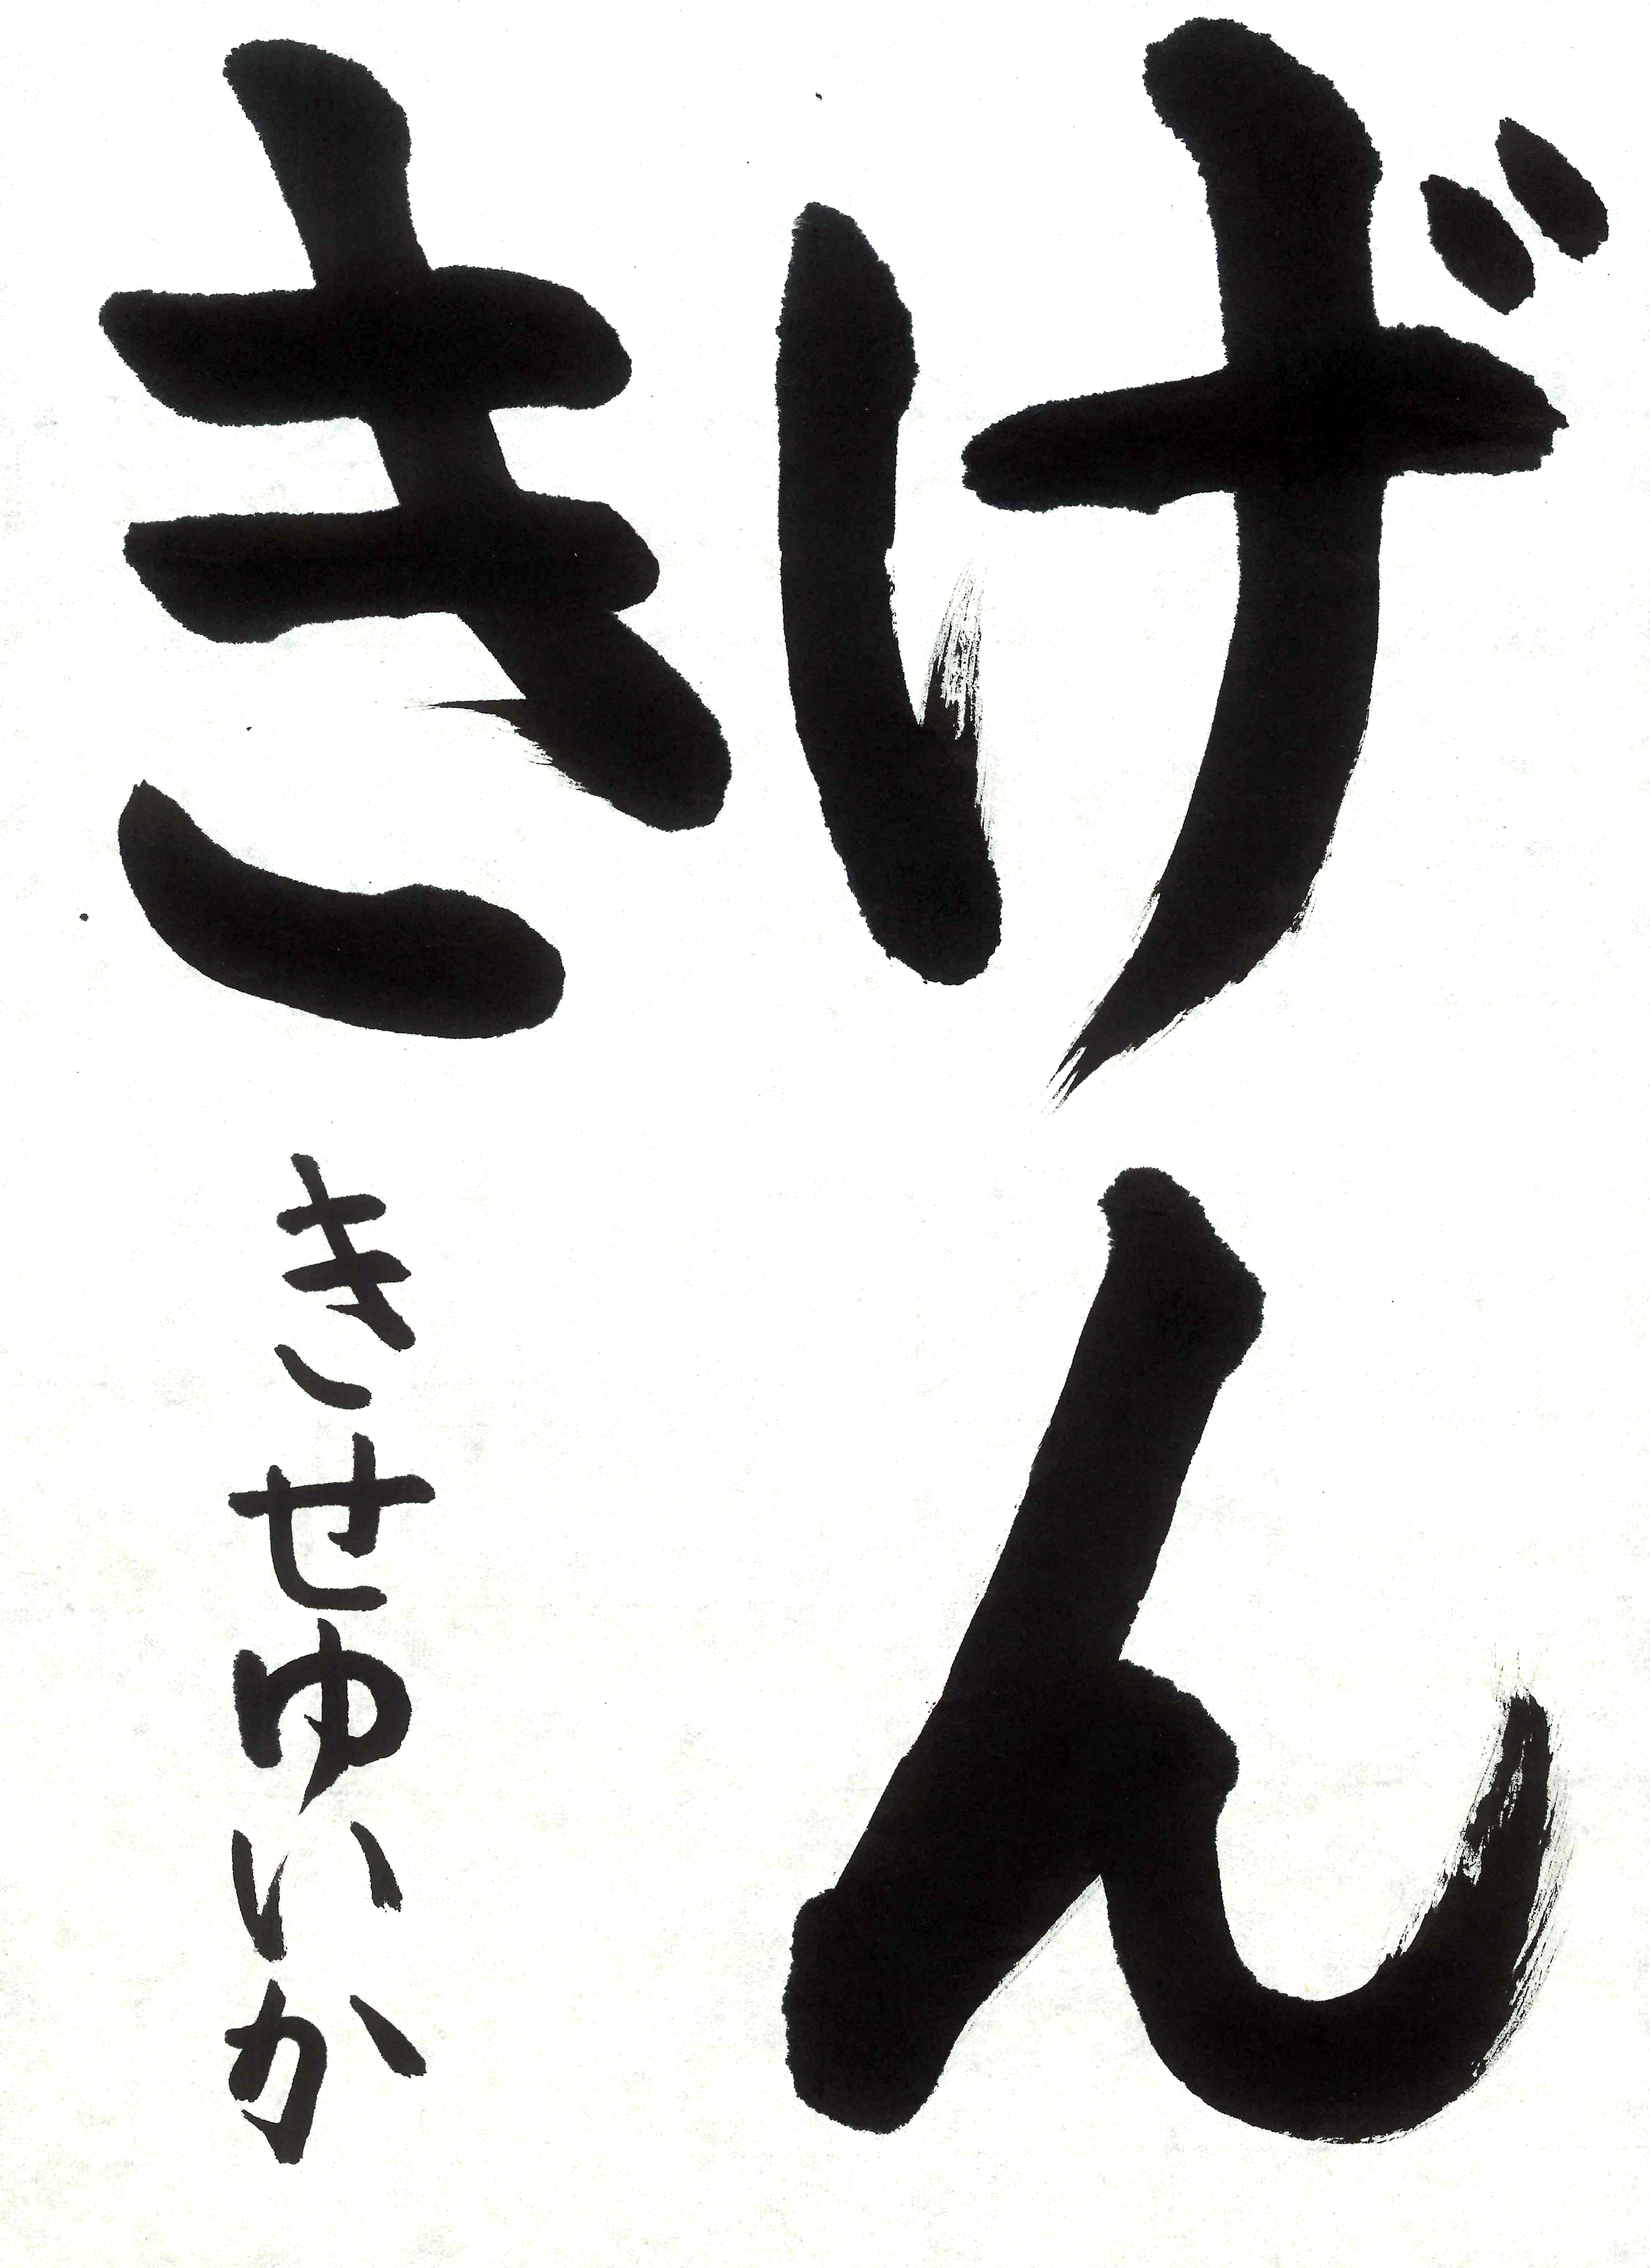 げん
き
きせゆいか